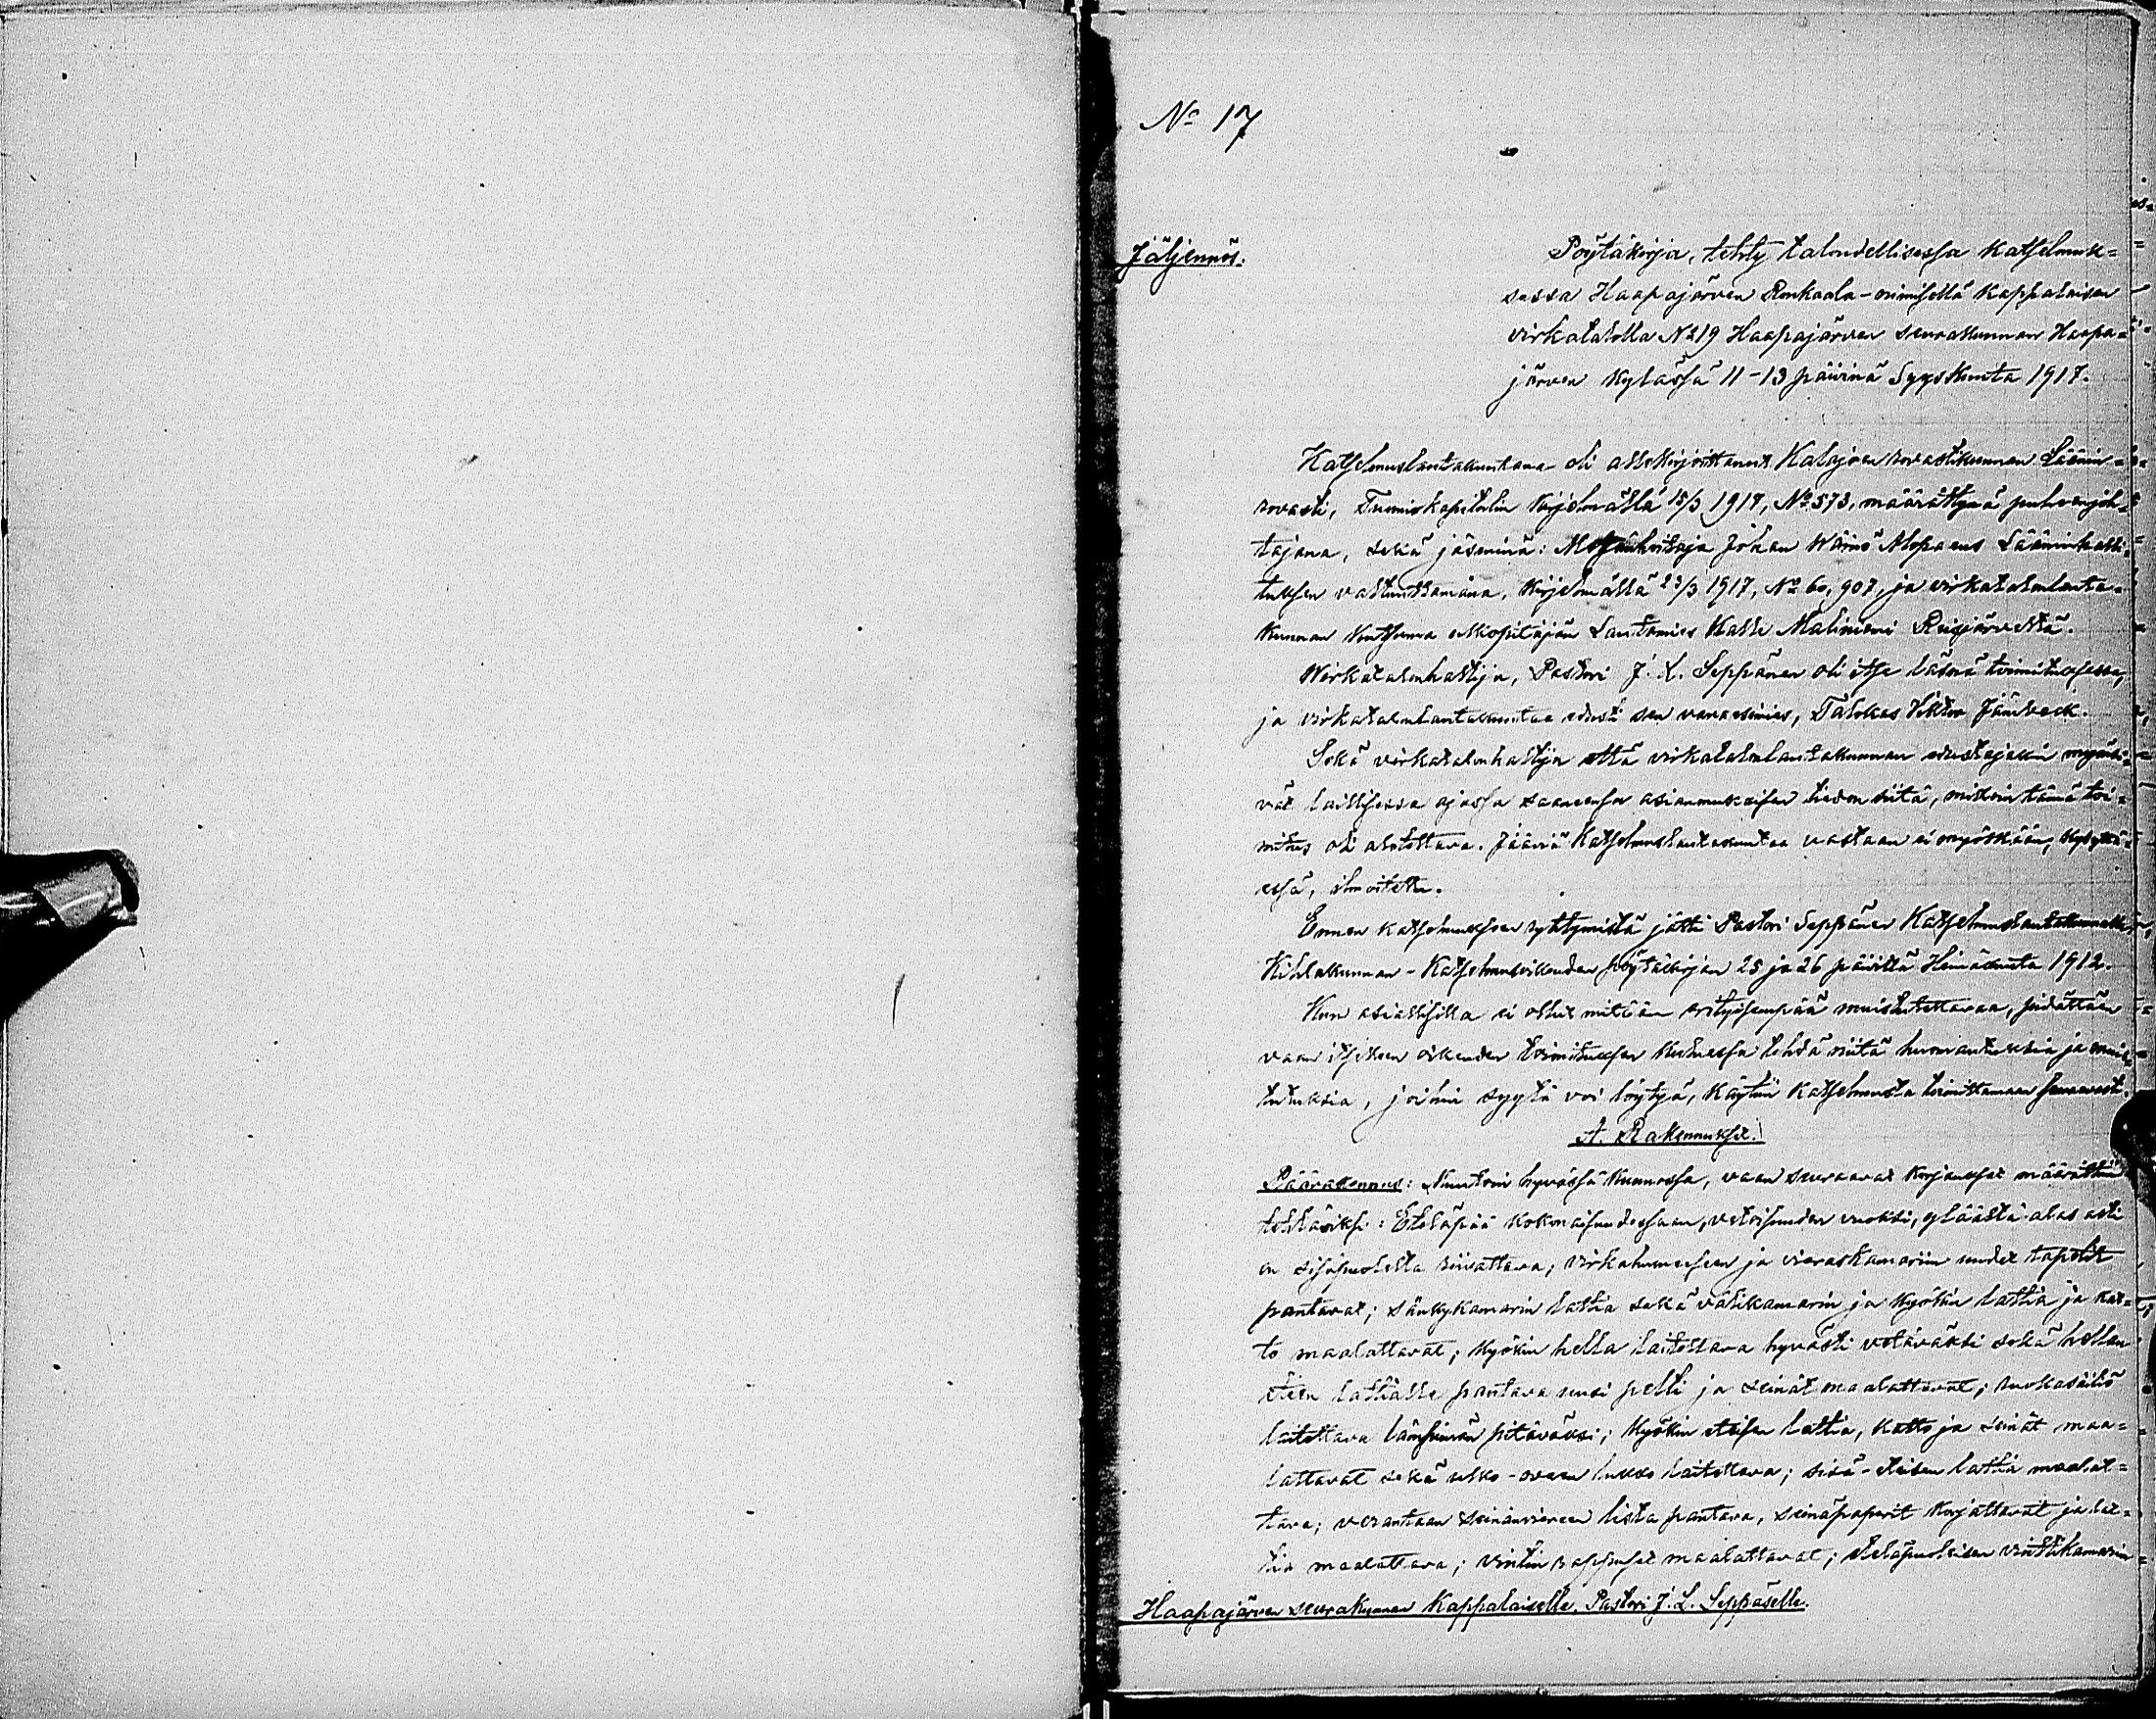 No 17
Jäljennös.
Pöytäkirja, tehty taloudellisessa katselmuk=
sessa Haapajärven Ronkaala-nimisellä kappalaisen
virkatalolla No 19 Haapajärven seurakunnan Haapa=
järven kylässä 11-13 päivinä Syyskuuta 1917.
Katselmuslautakuntana oli allekirjoittanut Kalajoen rovastikunnan Läänin=
rovasti, Tuomiokapitulin kirjelmällä 15/3 1917, No 573, määrättynä puheenjoh=
tajana, sekä jäseninä: Metsänhoitaja Johan Wäinö Alopaeus Lääninhalli=
tuksen valtuuttamana, kirjelmällä 23/3 1917, No 60,907, ja virkatalolauta=
kunnan kutsumana ulkopitäjän Lautamies Kalle Maliniemi Reisjärveltä.
Wirkatalonhaltija, Pastori J. L. Seppänen oli itse läsnä toimituksessa,
ja virkatalolautakuntaa edusti sen varaesimies, Talokas Viktor Jämbeck.
Sekä virkatalonhaltija että virkatalolautakunnan edustajakin myönsi=
vät laillisessa ajassa saaneensa asianmukaisen tiedon siitä, milloin tämä toi=
mitus oli aloitettava. Jääviä Katselmuslautakuntaa vastaan ei myöskään, kysyttä=
essä, ilmoitettu.
Ennen katselmuksen ryhtymistä jätti Pastori Seppänen Katselmuslautakunnalle
Kihlakunnan-Katselmusoikeuden pöytäkirjan 25 ja 26 päiviltä Heinäkuuta 1912.
Kun asiallisilla ei ollut mitään erityisempää muistutettavaa, pidättäen
vaan itselleen oikeuden toimituksen kuluessa tehdä niitä huomautuksia ja muis=
tutuksia, joihin syytä voi löytyä, käytiin katselmusta toimittamaan seuraavasti.
A. Rakennukset.
Päärakennus: Muutoin hyvässä kunnossa, vaan seuraavat korjaukset määrättiin
tehtäviksi: Eteläpää kokonaisuudessaan, vetoisuuden vuoksi, ylhäältä alas asti
on sisäpuolelta riivattava; virkahuoneeseen ja vieraskamariin uudet tapetit
pantavat; sänkykamarin lattia sekä välikamarin ja kyökin lattia ja kat=
to maalattavat; kyökin hella laitettava hyvästi vetäväksi sekä hellan
eteen lattialle pantava uusi pelti ja seinät maalattavat; ruokasäiliö
laitettava lämpimän pitäväksi; kyökin eteisen lattia, katto ja seinät maa=
lattavat sekä ulko-oveen lukko laitettava; sisä-eteisen lattia maalat=
tava; verantaan seinänviereen lista pantava, seinäpaperit korjattavat ja lat=
tia maalattava; vintin rappuset maalattavat; eteläpuoleisen vinttikamarin
Haapajärven seurakunnan Kappalaiselle, Pastori J. L. Seppäselle.